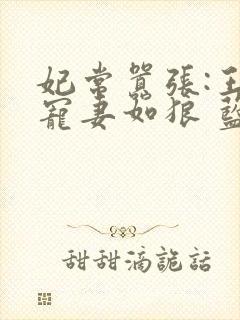 妃常囂張:王
寵妻如狼 藍
甜甜滴詭話